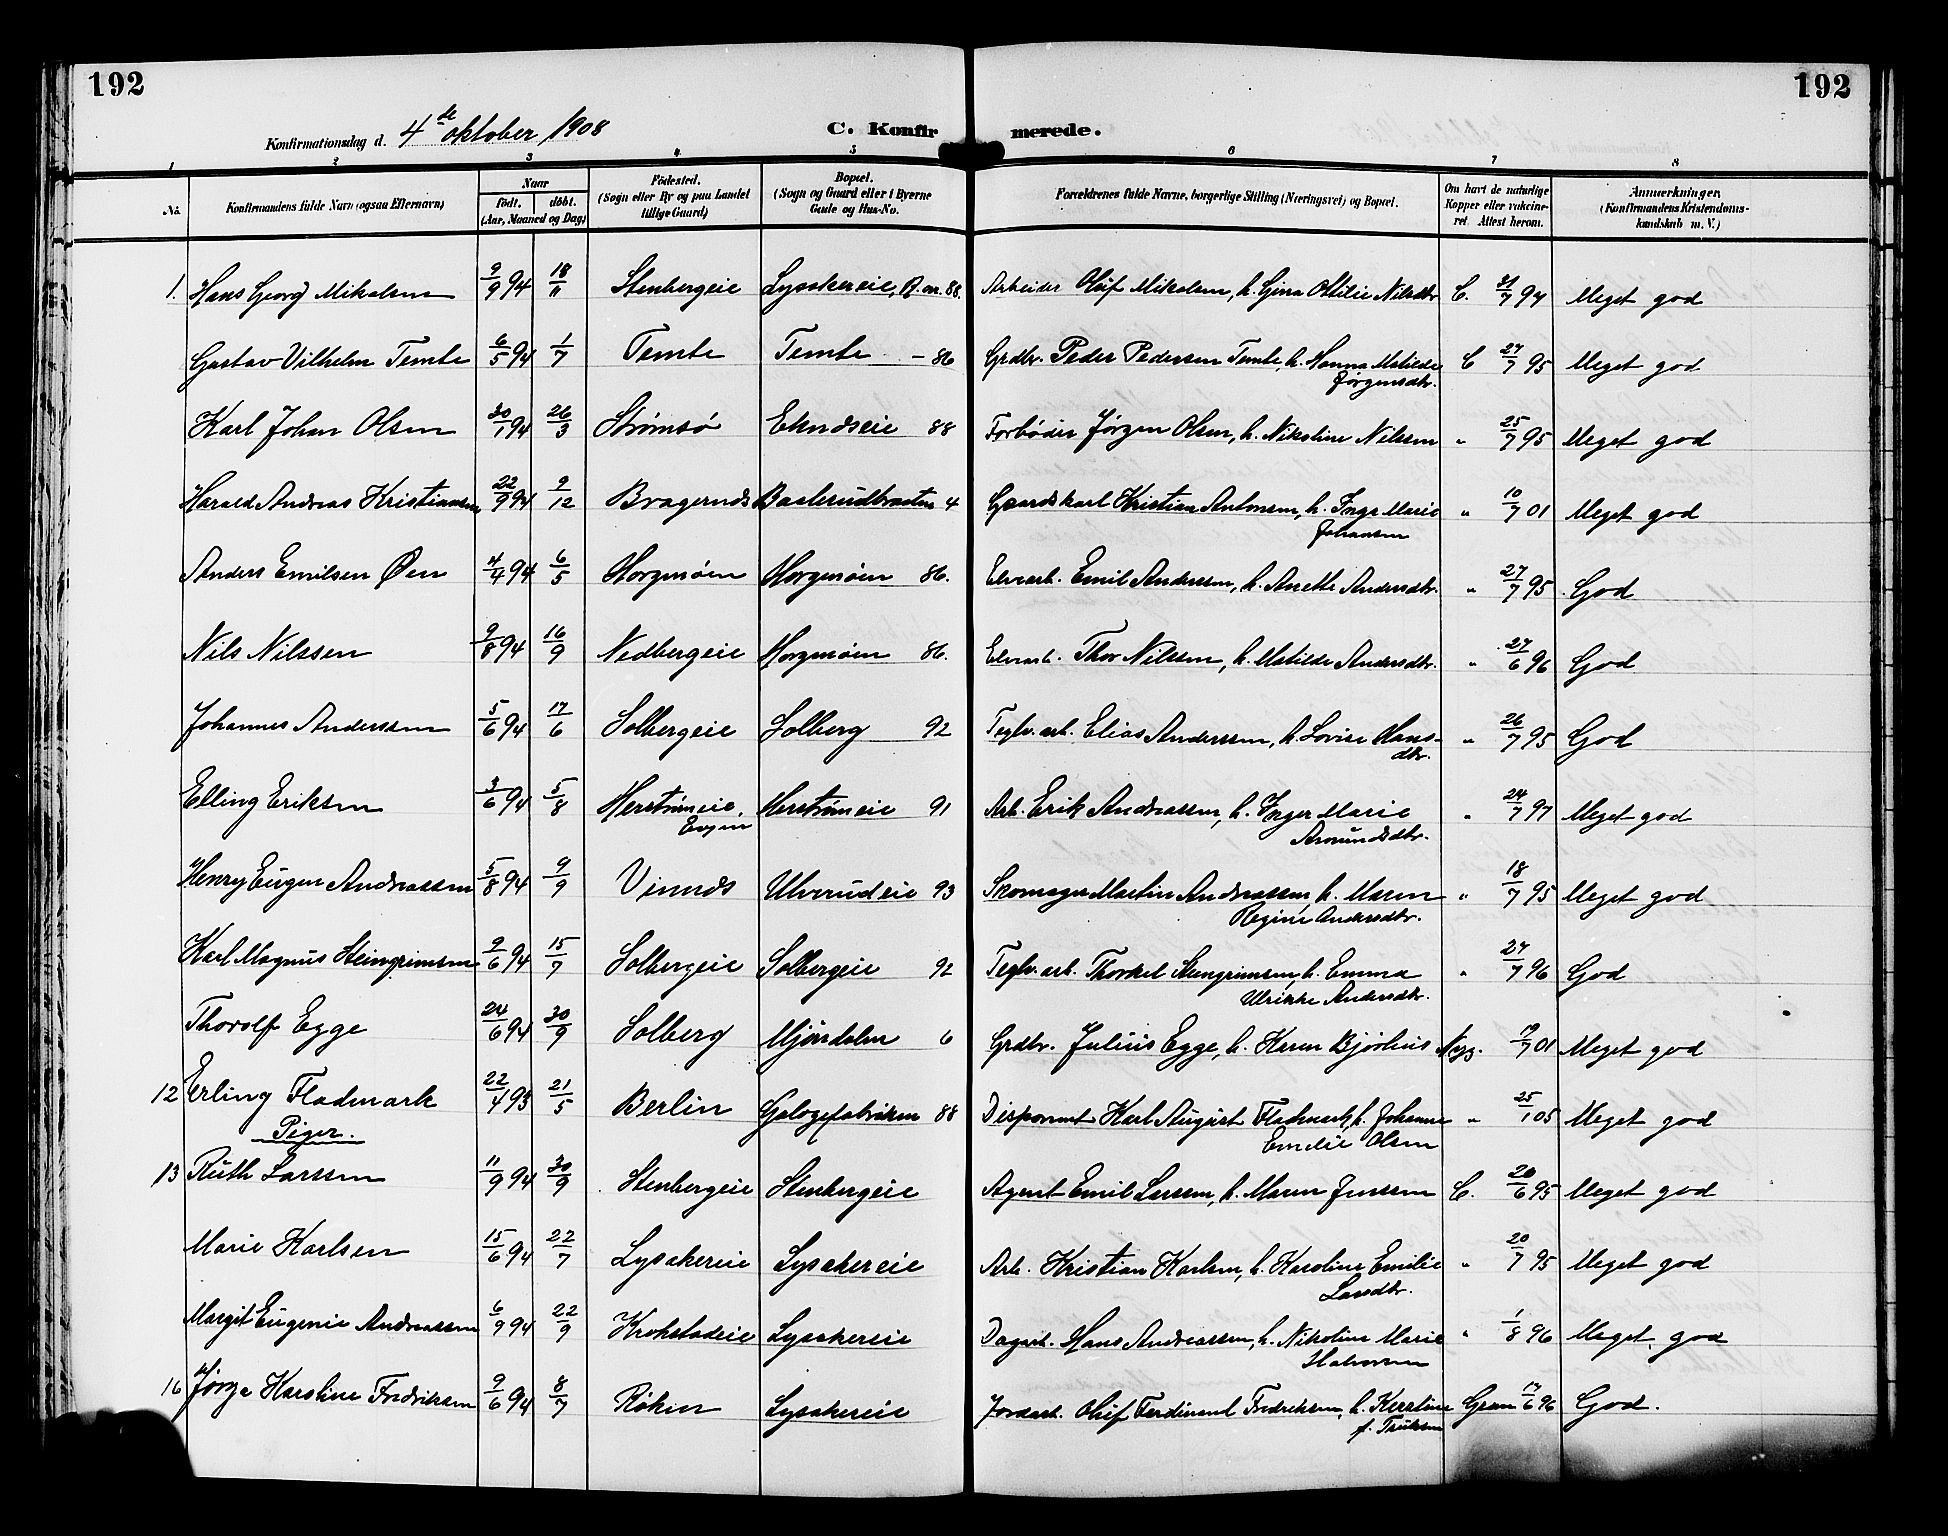 192
192
Konfirmationsdag d. 4de oktober 1908
C. Konfirmerede.
1 2 3 4 5 6 7 8
No. Konfirmandens fulde Navn (ogsaa Efternavn) Naar født. døbt. (Aar, Maaned og Dag) Fødested. (Sogn eller By og paa Landet tillige Gaard) Bopæl. (Sogn og Gaard eller i Byerne Gade og Hus-No. Forældrenes fulde Navne, borgerlige Stilling (Næringsvei) og Bopæl. Om havt de naturlige Kopper eller vakcineret. Attest herom. Anmærkninger, (Konfirmandens Kristendomskundskab m. V.)
1. Hans Georg Mikalsen 9/9 94 18/11 Stenbergeie Lysakereie, B. nr. 88. Arbeider Oluf Mikalsen, h. Gina Otilie Nilsdtr. C. 31/7 97 Meget god
Gustav Vilhelm Temte 6/5 94 1/7 Temte Temte – 86 Grdbr. Peder Pedersen Temte, h. Hanna Matilde C 27/7 95 Meget god
Jørgensdtr.
Karl Johan Olsen 30/1 94 26/3 Strømsø Eknæseie 88 Forbøder Jørgen Olsen, h. Nikoline Nilssen " 25/7 95 Meget god
Harald Andreas Kristiansen 22/9 94 9/12 Bragernæs Baalerudbraaten 4 Gaardskarl Kristian Antonsen, h. Inga Marie " 10/7 01 Meget god
Johansen
Anders Emilsen Øen 4/4 94 6/5 Horgenøen Horgenøen 86. Elvearb. Emil Anderssen, h. Anette Andersdtr. " 27/7 95 God
Nils Nilssen 9/8 94 16/9 Nedbergeie Horgenøen 86. Elvearb. Thor Nilssen, h. Matilde Andersdtr. " 27/6 96 God
Johannes Anderssen 5/6 94 17/6 Solbergeie Solberg 92 Teglv.arb. Elias Anderssen, h. Lovise Hans- " 26/7 95 God
dtr.
Elling Eriksen 3/6 94 5/8 Herstrømeie, Herstrømeie 91 Arb. Erik Andreassen, h. Inger Marie " 24/7 97 Meget god
Eugen Amundsdtr.
Henry Eugen Andreassen 5/8 94 9/9 Vinnæs Ulverudeie 93 Skomager Martin Andreassen, h. Maren " 18/7 95 Meget god
Regine Andersdtr.
Karl Magnus Steingrimsen 9/6 94 15/7 Solbergeie Solbergeie 92 Teglv.arb. Thorkel Steingrimsen, h. Emma " 27/7 96 God
Ulrikke Andersdtr.
Thorolf Egge 24/6 94 30/9 Solberg Mjøndalen 6 Grdbr. Julius Egge, h. Karen Bjørhus 19/7 01 Meget god
12 Erling Fladmark 22/4 93 21/5 Berlin Galogefabriken 88 Disponent Karl August Fladmark, h. Johanne " 25/1 05 Meget god
Piger. Emelie Olsen
13 Ruth Larssen 11/9 94 30/9 Stenbergeie Stenbergeie Agent Emil Larssen, h. Maren Jenssen C. 20/6 95 Meget god
Marie Karlsen 15/6 94 22/7 Lysakereie Lysakereie Arb. Kristian Karlsen, h. Karoline Emilie " 20/7 95 Meget god
Larsdtr.
Margit Eugenie Andreassen 6/9 94 22/9 Krokstadeie Lysakereie Dagarb. Hans Andreassen, h. Nikoline Marie " 1/8 96 Meget god
Halvorsen
16 Jørga Karoline Fredriksen 9/6 94 8/7 Røken Lysakereie Jordarb. Oluf Ferdinand Fredriksen, h. Kerstine Gran 17/6 96 God.